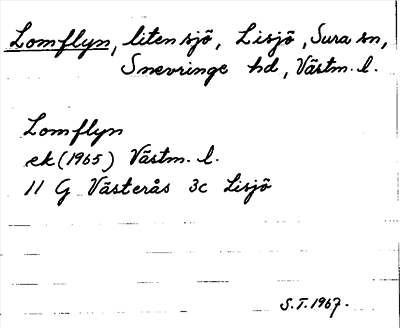 Lomflyn, liten sjö, Lisjö, Sura sn,
Snevringe hd, Västm. l.
Lomflyn
ek (1965) Västm. l.
11 G Västerås 3c Lisjö
S.T. 1967.